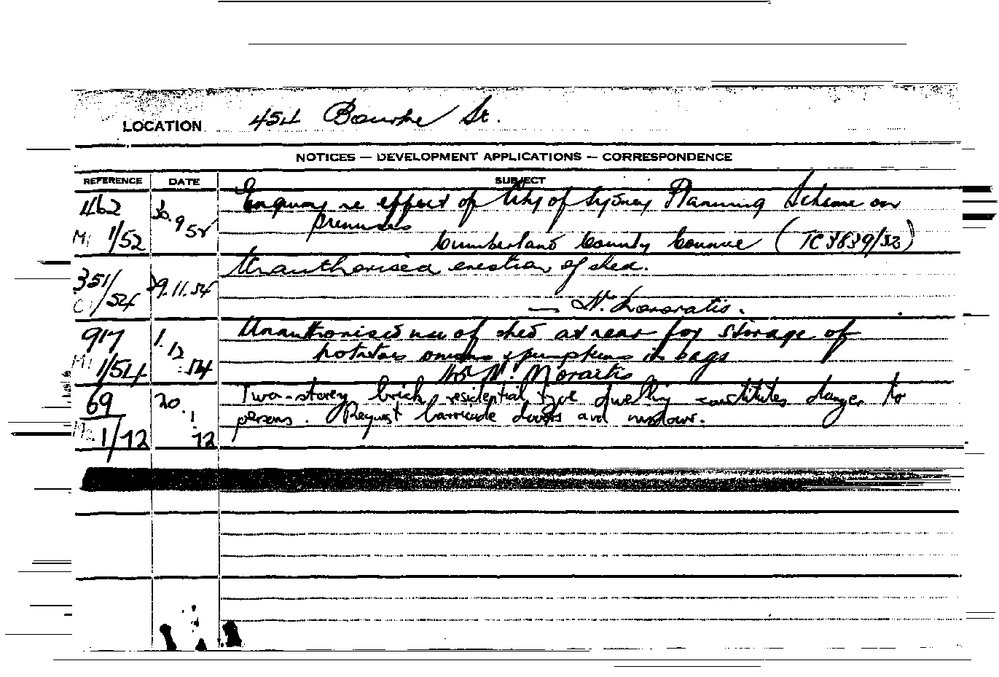 LOCATION 454 Bourke St.
NOTICES — DEVELOPMENT APPLICATIONS — CORRESPONDENCE
REFERENCE DATE SUBJECT
462 30.9.52 Enquiry re effect of City of Sydney Planning Scheme on
M: 1/52 premises
Cumberland County Council (TC 3839/52)
351/ 29.11.54 Unauthorised erection of shed.
C: /54 — N.
917 1.12 Unauthorised use of shed at rear for storage of
M: 1/54 .54 potatoes onions & pumpkins in bags
N. Moraitis
69 20. Two-storey brick residential type dwelling constitutes danger to
1/72 1 persons. Request barricade doors and windows.
72